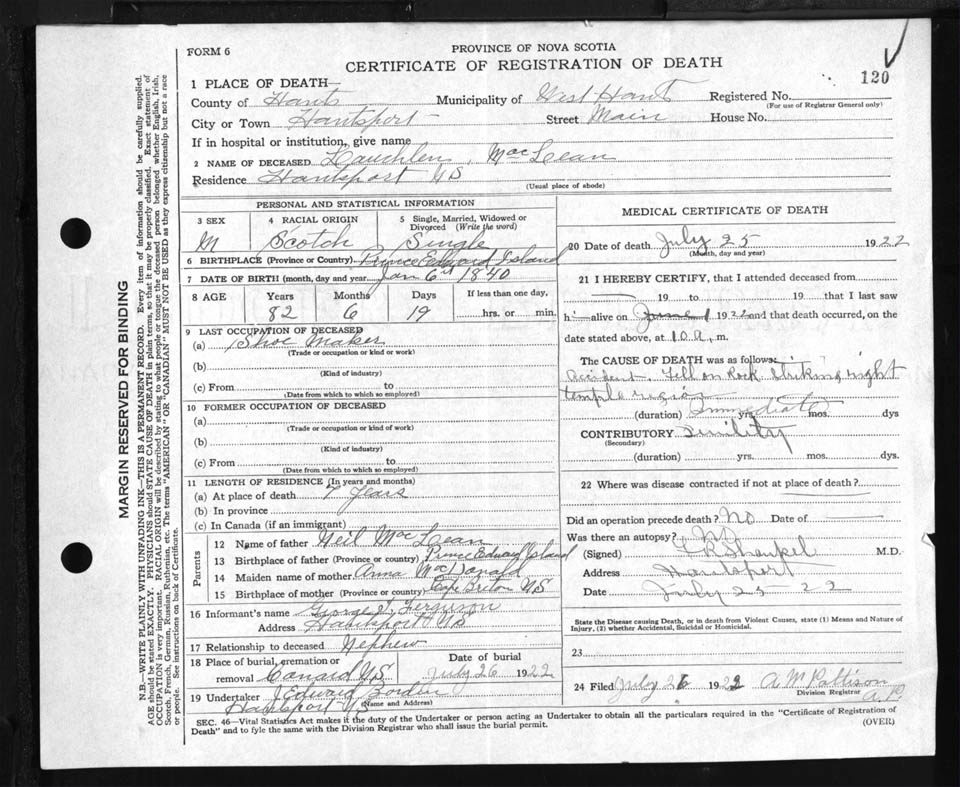 FORM 6
PROVINCE OF NOVA SCOTIA
CERTIFICATE OF REGISTRATION OF DEATH
120
1 PLACE OF DEATH—
County of Hants Municipality of West Hants Registered No.
(For use of Registrar General only)
City or Town Hantsport Street Main House No.
If in hospital or institution, give name
2 NAME OF DECEASED Lauchlen MacLean
Residence Hantsport NS
(Usual place of abode)
PERSONAL AND STATISTICAL INFORMATION
3 SEX 4 RACIAL ORIGIN 5 Single, Married, Widowed or Divorced (Write the word)
M Scotch Single
6 BIRTHPLACE (Province or Country) Prince Edward Island
7 DATE OF BIRTH (month, day and year) Jan 6th 1840
8 AGE Years Months Days If less than one day,
82 6 19 hrs. or min.
9 LAST OCCUPATION OF DECEASED
(a) Shoe Maker
(Trade or occupation or kind or work)
(b)
(Kind of industry)
(c) From to
(Date from which to which so employed)
10 FORMER OCCUPATION OF DECEASED
(a)
(Trade or occupation or kind or work)
(b)
(Kind of industry)
(c) From to
(Date from which to which so employed)
11 LENGTH OF RESIDENCE (In years and months)
(a) At place of death 7 Years
(b) In province
(c) In Canada (if an immigrant)
Parents
12 Name of father Neil MacLean
13 Birthplace of father (Province or country) Prince Edward Island
14 Maiden name of mother Anna MacDonald
15 Birthplace of mother (Province or country) Cape Breton NS
16 Informant's name George Ferguson
Address Hantsport NS
17 Relationship to deceased Nephew
18 Place of burial, cremation or removal NS Date of burial July 26 1922
19 Undertaker J Edward Borden
Hantsport NS (Name and Address)
MEDICAL CERTIFICATE OF DEATH
20 Date of death July 25 1922
(Month, day and year)
21 I HEREBY CERTIFY, that I attended deceased from
— 19 to — 19 that I last saw
h — alive on June 1 1922 and that death occurred, on the
date stated above, at 10 a. m.
The CAUSE OF DEATH was as follows:
Accident. Fell on Rock striking right
temple region
(duration) Immediate yrs. mos. dys
CONTRIBUTORY Senility
(Secondary)
(duration) yrs. mos. dys
22 Where was disease contracted if not at place of death?
Did an operation precede death? No Date of —
Was there an autopsy? No
(Signed) Shankel M.D.
Address Hantsport
Date July 25 22
State the Disease causing Death, or in death from Violent Causes, state (1) Means and Nature of Injury, (2) whether Accidental, Suicidal or Homicidal.
23
24 Filed July 26 1922 A M Pattison
Division Registrar
SEC. 46—Vital Statistics Act makes it the duty of the Undertaker or person acting as Undertaker to obtain all the particulars required in the "Certificate of Registration of
Death" and to fyle the same with the Division Registrar who shall issue the burial permit.
(OVER)
MARGIN RESERVED FOR BINDING
N.B.—WRITE PLAINLY WITH UNFADING INK—THIS IS A PERMANENT RECORD. Every item of information should be carefully supplied.
AGE should be stated EXACTLY. PHYSICIANS should STATE CAUSE OF DEATH in plain terms, so that it may be properly classified. Exact statement of
OCCUPATION is very important. RACIAL ORIGIN will be described by stating to what people or tongue the deceased person belonged whether English, Irish,
Scotch, French, German, Russian, Ruthenian, etc. The terms "AMERICAN" OR "CANADIAN" MUST NOT BE USED as they express citizenship but not a race
or people. See instructions on back of Certificate.